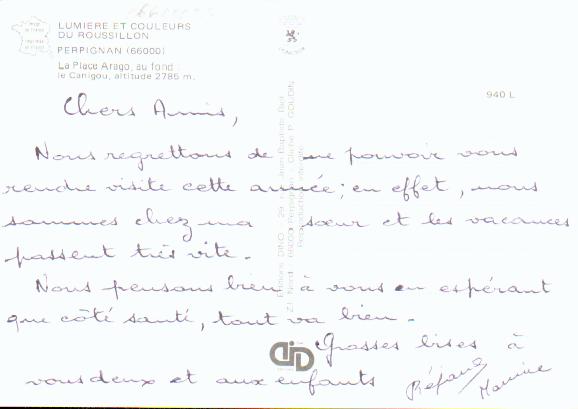 LUMIERE ET COULEURS
DU ROUSSILLON
PERPIGNAN (66000)
La Place Arago, au fond :
le Canigou, altitude 2785 m.
940 L
Chers Amis,
Nous regrettons de ne pouvoir vous
rendre visite cette année ; en effet, nous
sommes chez ma sœur et les vacances
passent très vite.
Nous pensons bien à vous en espérant
que côté santé, tout va bien.
Grosses bises à
vous deux et aux enfants
Maurice